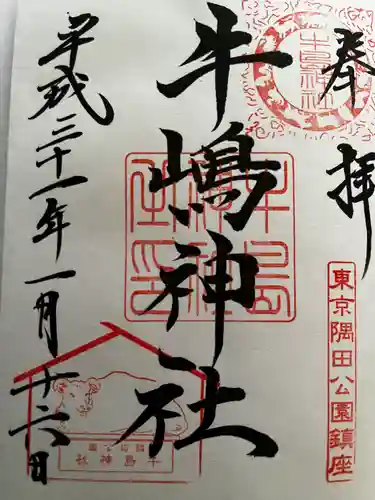 奉拝
東京隅田公園鎮座
牛嶋神社
平成三十一年一月十六日
牛島神社